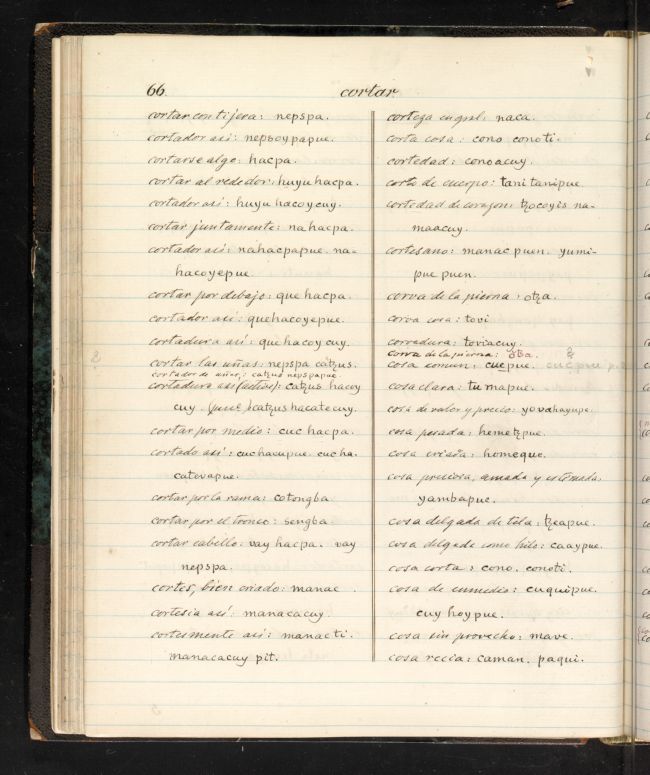 66
cortar.
cortar con tijera: nepspa.
cortador asi: nepsoypapue.
cortarse algo: hacpa.
cortar al rededor: huyuhacpa.
cortador asi: huyu hacoycuy.
cortar juntamente: nahacpa.
cortador asi: nahacpapue. na-
hacoyepue.
cortar por debajo: quehacpa.
cortador asi: quehacoyepue.
cortadura asi: quehacoycuy.
cortar las uñas: nepspa catzus.
cortador de uñas: catzus nepspapue.
cortadura asi (activo): catzus hacoy
cuy. catzus hacatecuy.
cortar por medio: cuc hacpa.
cortado asi: cuchacupue. cucha.
catevapue.
cortar por la rama: cotongba.
cortar por el tronco: sengba.
cortar cabello: vay hacpa. vay
nepspa.
cortes, bien criado: manac.
cortesia asi: manacacuy.
cortesmente asi: manacti.
manacacuy pit.
corteza en gral: naca.
corta cosa: cono conoti.
cortedad: conoacuy.
corto de cuerpo: tani tanipue.
cortedad de corazon: tzocoyis na-
maacuy.
cortesano: manac puen. yumi-
pue puen.
corva de la pierna: otza.
corva cosa: tovi
corvadura: toviacuy.
corva de la pierna: otza.
cosa comun: cuepue.
cosa clara: tumapue.
cosa de valor y precio: yovahayupe.
cosa pesada: hemetzpue.
cosa criada: homeque.
cosa preciosa, amada y estimada.
yambapue.
cosa delgada de tela: tzeapue.
cosa delgada como hilo: caaypue.
cosa corta: cono. conoti.
cosa de enmedio: cuquipue.
cuy hoypue.
cosa sin provecho: mave.
cosa recia: caman. paqui.